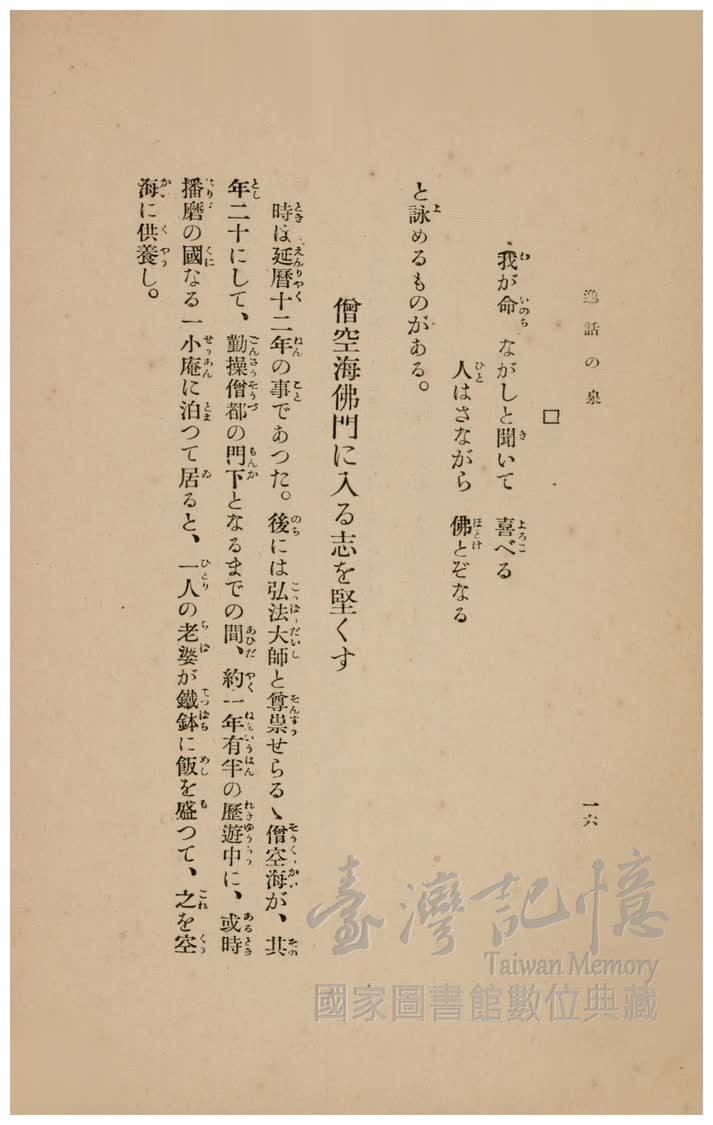 逸話の泉
一六
□
我が命 ながしと聞いて 喜べる
人はさながら 佛とぞなる
と詠めるものがある。
僧空海佛門に入る志を堅くす
時は延暦十二年の事であつた。後には弘法大師と尊祟せらるゝ僧空海が、其
年二十にして、勤操僧都の門下となるまでの間、約一年有半の歴遊中に、或時
播磨の國なる一小庵に泊つて居ると、一人の老婆が鐵鉢に飯を盛つて、之を空
海に供養し。
臺灣記憶
Taiwan Memory
國家圖書館數位典藏